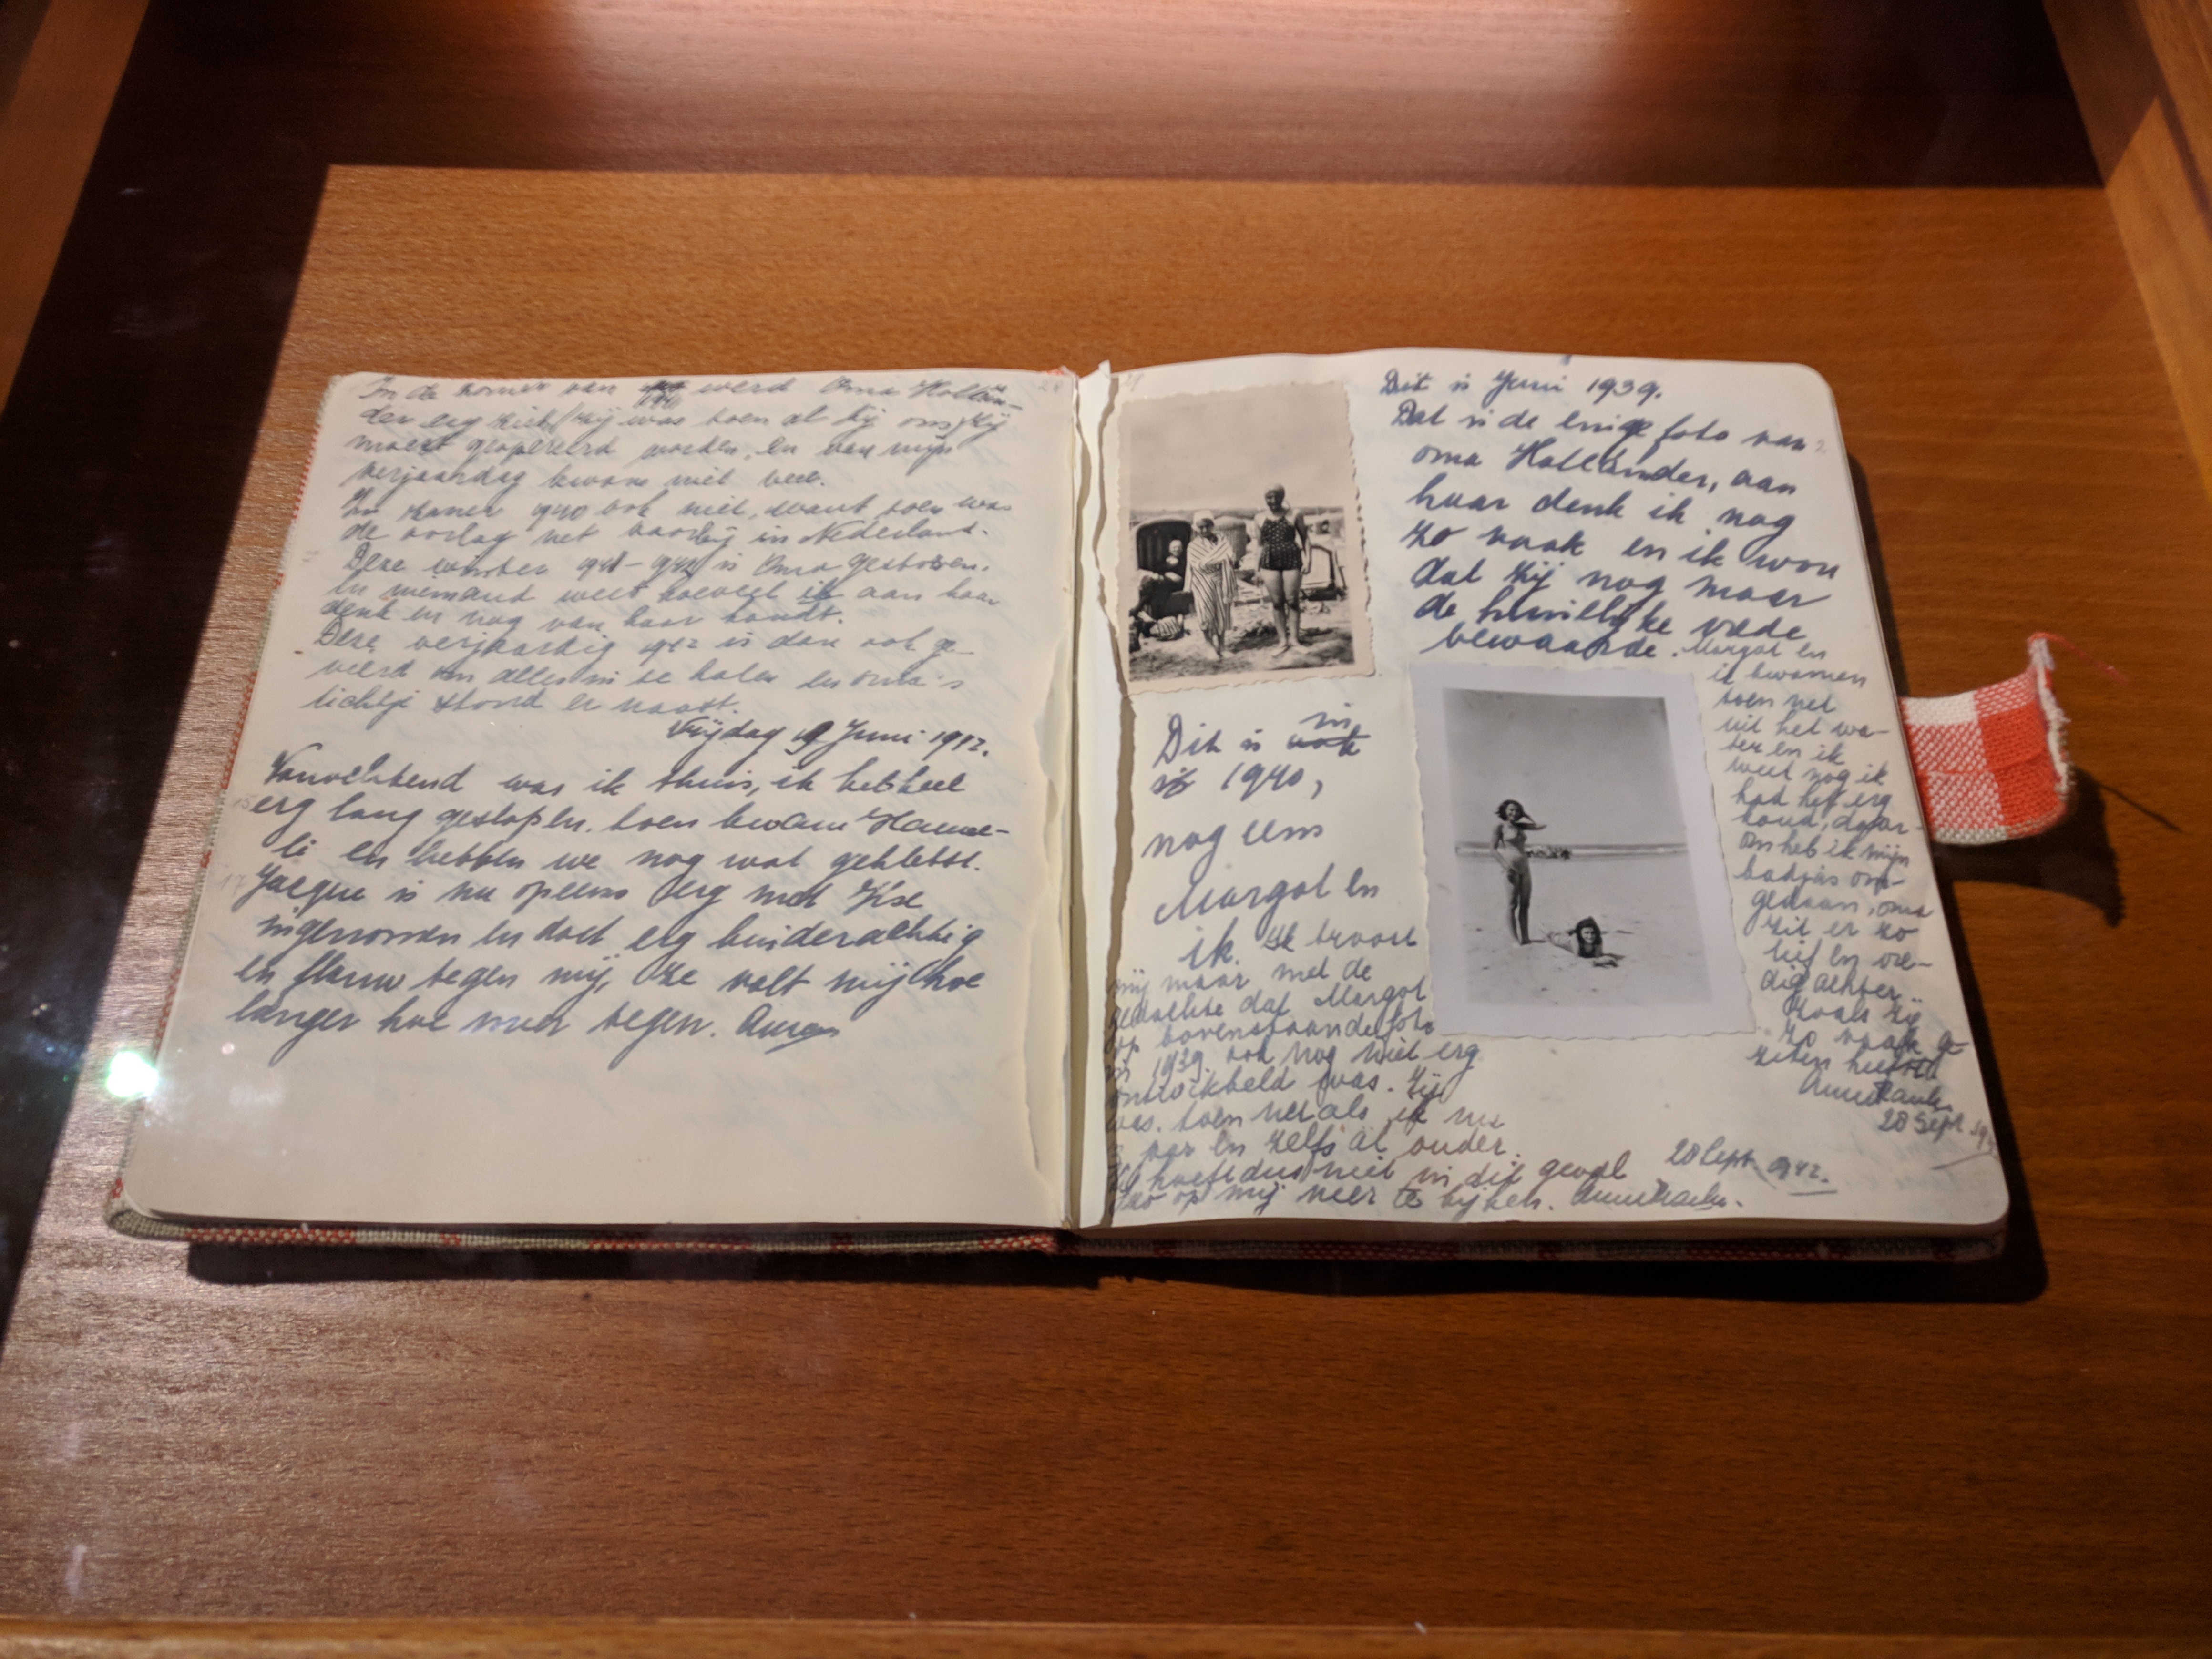 In de zomer van 1941 werd Oma Hollän-
der erg ziek, (zij was toen al bij ons) zij
moest geopereerd worden, en van mijn
verjaardag kwam niet veel.
In zomer 1940 ook niet, want toen was
de oorlog net voorbij in Nederland.
Deze winter 1941-1942 is Oma gestorven.
En niemand weet hoeveel ik aan haar
denk en nog van haar houdt.
Deze verjaardag 1942 is dan ook ge-
veerd om alles in te halen en oma's
lichtje stond er naast.
Vrijdag 19 Juni 1942.
Vanochtend was ik thuis, ik heb heel
erg lang geslapen, toen kwam Hanne-
li en hebben we nog wat gekletst.
Jacque is nu opeens erg met Ilse
ingenomen en doet erg kinderachtig
en flauw tegen mij, ze valt mij hoe
langer hoe meer tegen. Anne
Dit is Juni 1939.
Dat is de enige foto van
oma Holländer, aan
haar denk ik nog
zo vaak en ik wou
dat zij nog maar
de huiselijke vrede
bewaarde. Margot en
ik kwamen
toen net
uit het wa-
ter en ik
weet nog ik
had het erg
koud, daar-
om heb ik mijn
badjas om-
gedaan, oma
zit er zo
lief en vre-
dig achter.
Zoals zij
zo vaak ge-
zeten heeft
Anne Frank.
28 Sept. 194
Dit is in
1940,
nog eens
Margot en
ik. Ik troost
mij maar met de
gedachte dat Margot
op bovenstaande foto
in 1939. ook nog niet erg
ontwikkeld was. Zij
was toen net als ik nu
jaar en zelfs al ouder.
hoeft dus niet in dit geval
zo op mij neer te kijken. Anne Frank.
28 Sept. 1942.